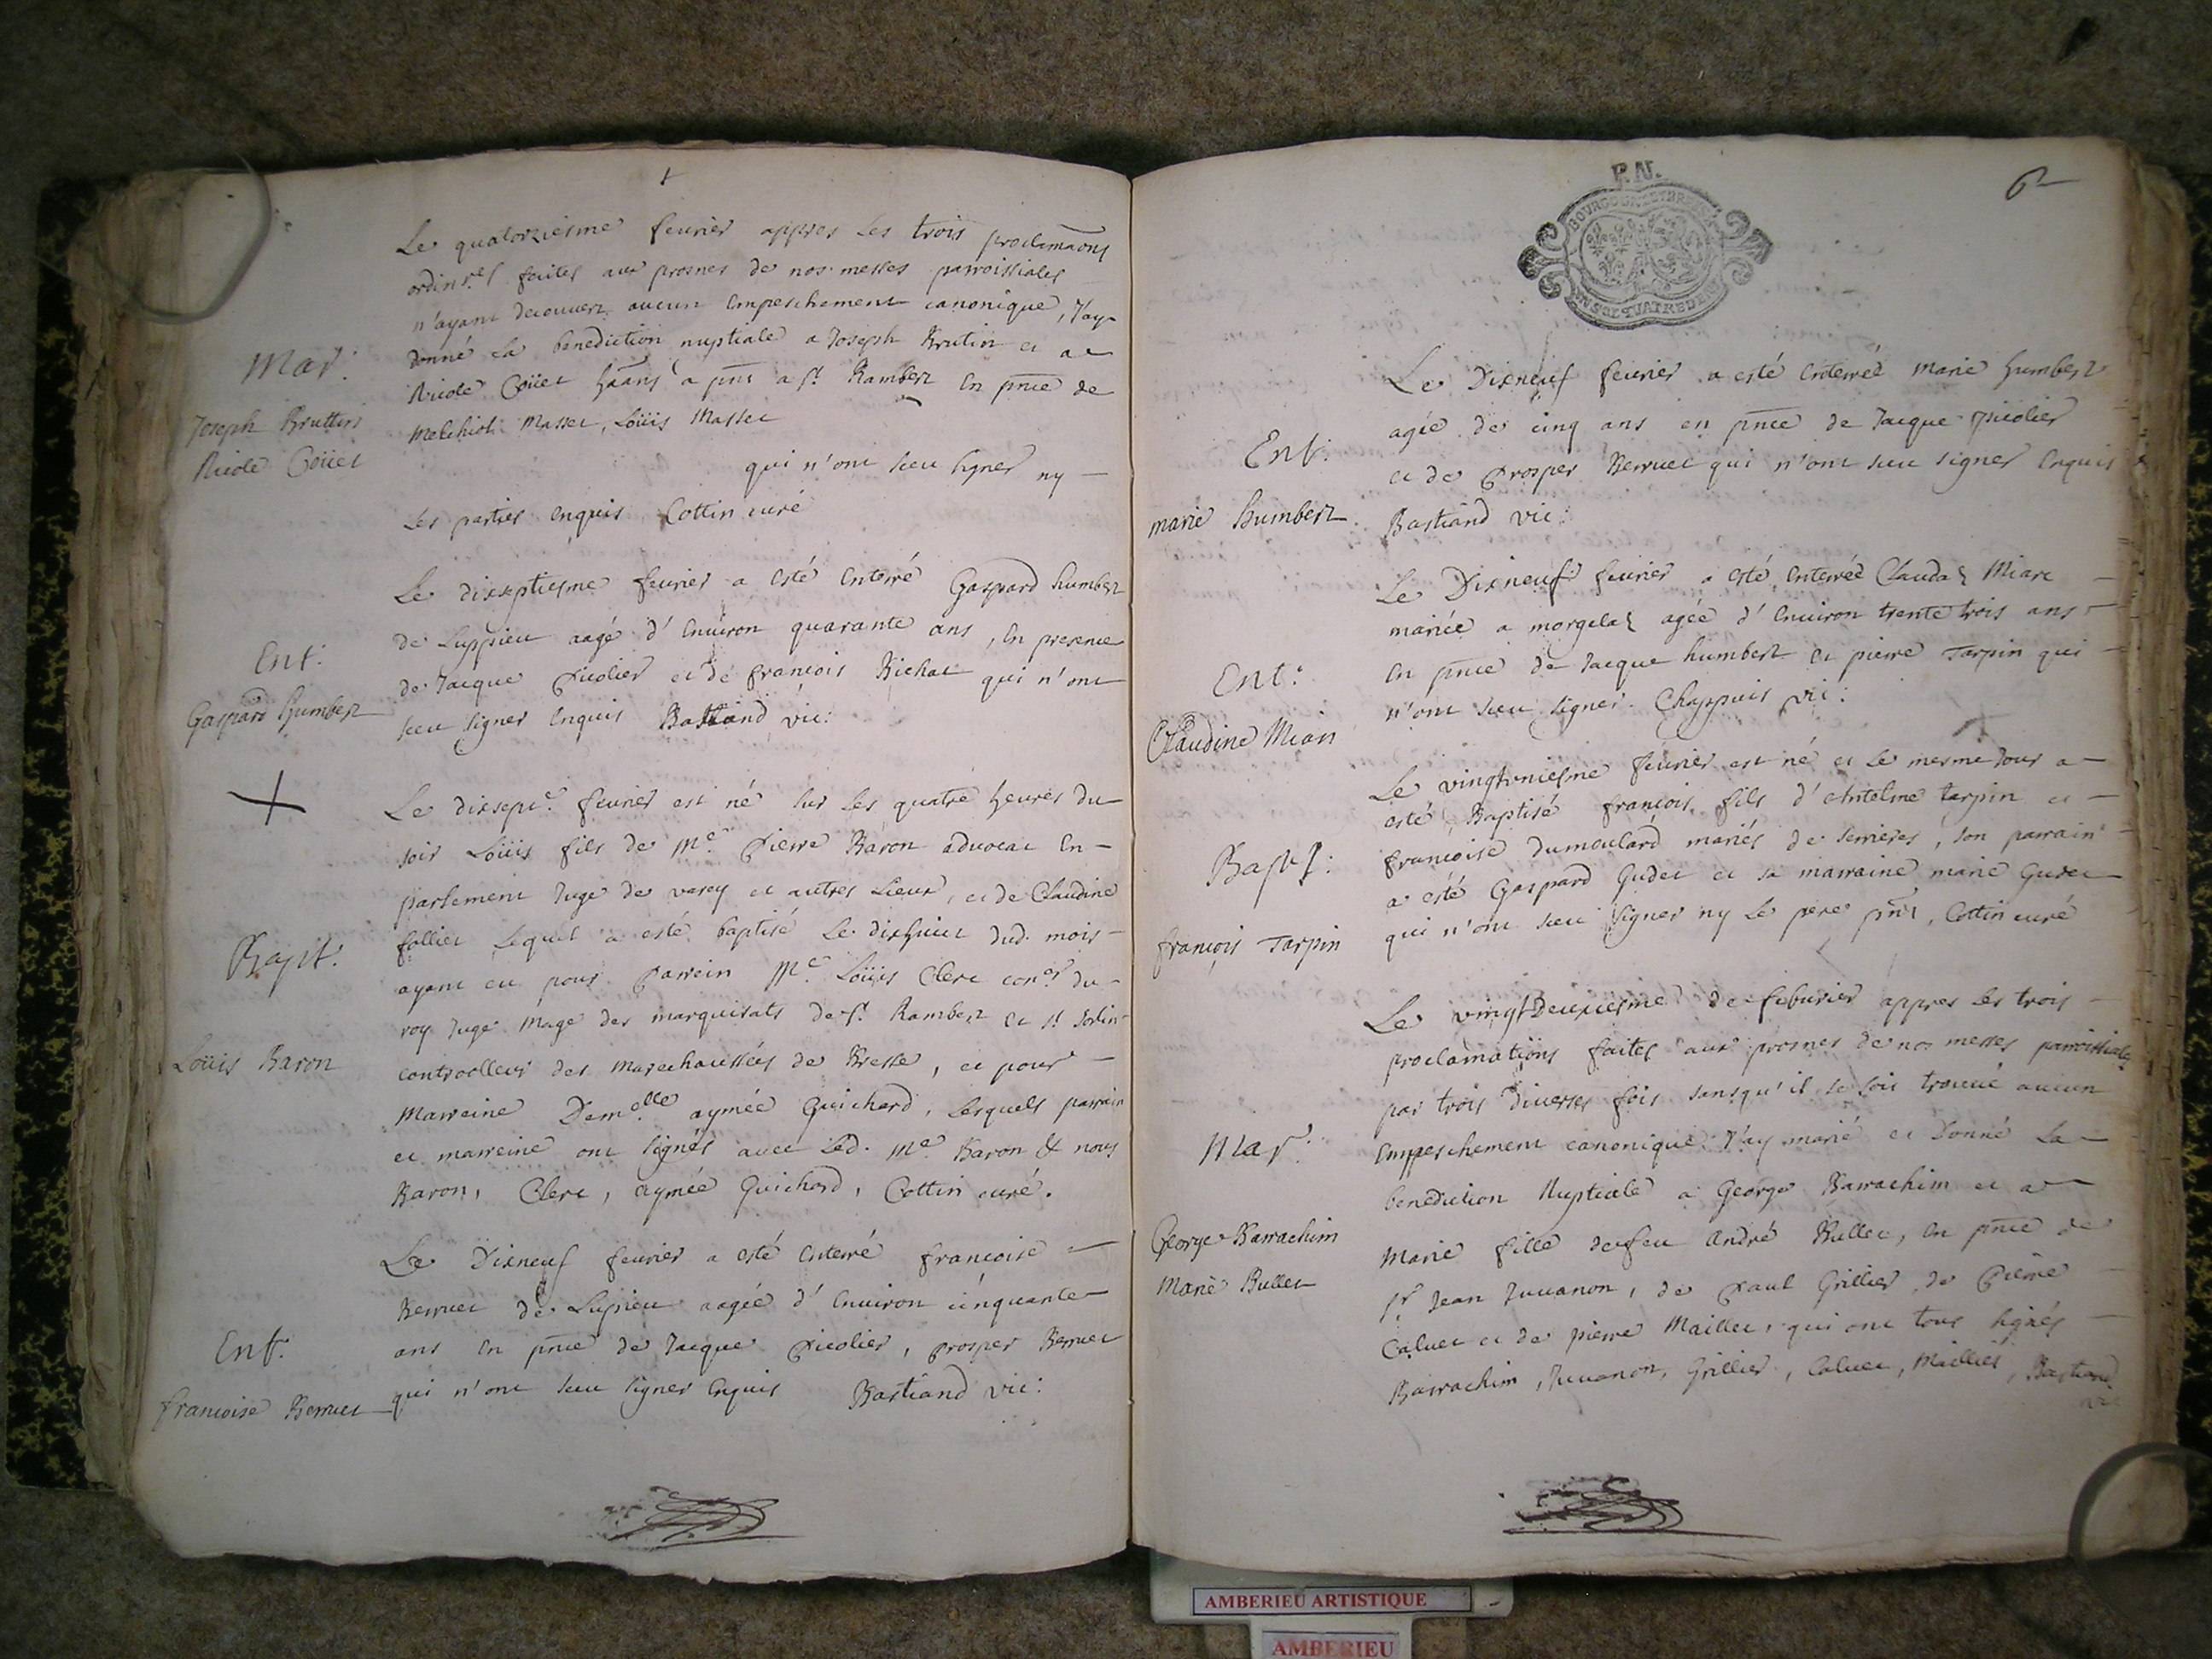 Le quatorziesme feurier appres les trois proclimaons
ordinres faites aux prosnes de nos messes parroissiales
n'ayant decouuert aucun empeschement canonique, J'ay
donné la benediction nuptiale a Joseph Brutin et a
Nicole Coüet a pnt a st Rambert en pnce de
Melchiot Masset, Loüis Masset
qui n'ont sceu signer ny
les parties enquis Cottin curé
Mar:
Joseph Bruttin
Nicole Coüet
Le dixseptiesme feurier a esté enterré Gaspard humbert
de Luppieu aagé d'enuiron quarante ans, en presence
de Jacque picolier et de francois Bichat qui n'ont
sceu signer enquis Bastiand vic:
Ent:
Gaspard humbert
Le dixsepte feurier est né sur les quatre heures du
soir Loüis fils de Me Pierre Baron aduocat en
parlement Juge de varey et autres Lieux, et de Claudine
follier Lequel a esté baptisé Le dixhuict dud. mois
ayant eu pour parrein Me Loüis Clerc coner du
roy Juge mage des marquisats de st Rambert et st Sorlin
controolleur des marechaussées de Bresse, et pour
Marreine Demelle aymée Guichard, Lesquels parrain
et marreine ont signés auec Led. Me Baron & nous
Baron, Clerc, aymée Guichard, Cottin curé.
Bapt:
Loüis Baron
Le Dixneuf feurier a esté enterré francoise
Berruet de Lupieu aagée d'enuiron cinquante
ans en pnce de Jacque picolier, prosper Berruet
qui n'ont sceu signer enquis Bastiand vic:
Ent:
francoise Berruet
P.N.
BOURGOGNE ET BRESSE
6
Le Dixneuf feurier a esté enterréé marie humbert
agée de cinq ans en pnce de Jacque picolier
et de prosper Berruet qui n'ont sceu signer enquis
Bastiand vic:
Ent:
marie humbert
Le Dixneuf feurier a esté enterréé Clauda Miare
mariée a morgelas agée d'enuiron trente trois ans
en pnce de Jacque humbert et pierre Tarpin qui
n'ont sceu signer. Chappuis vic:
Ent:
Claudine Mian
Le vingtvniesme feurier est né et le mesme Jour a
esté Baptisé francois fils d'Antelme tarpin et
francoise dumoulard mariés de serrieres, son parrain
a esté Gaspard Gudet et sa marraine marie Gudet
qui n'ont sceu signer ny le pere pnt, Cottin curé
Bapt:
françois Tarpin
Le vingtDeuxiesme de feburier appres les trois
proclamations faites aux prosnes de nos messes parroissiales
par trois diuerses fois sansqu'il se soit trouué aucun
empeschement canonique J'ay marié et donné La
benediction Nuptiale a George Barrachim et a
Marie fille defeu André Bullet, en pnce de
sr Jean Juuanon, de paul Grillier de Pierre
Caluet et de pierre Maillet, qui ont tous signés
Barrachim, Juuanon, Grillier, Caluet, Maillet, Bastiand
vic
Mar:
George Barrachim
Marie Bullet
AMBERIEU ARTISTIQUE
AMBERIEU